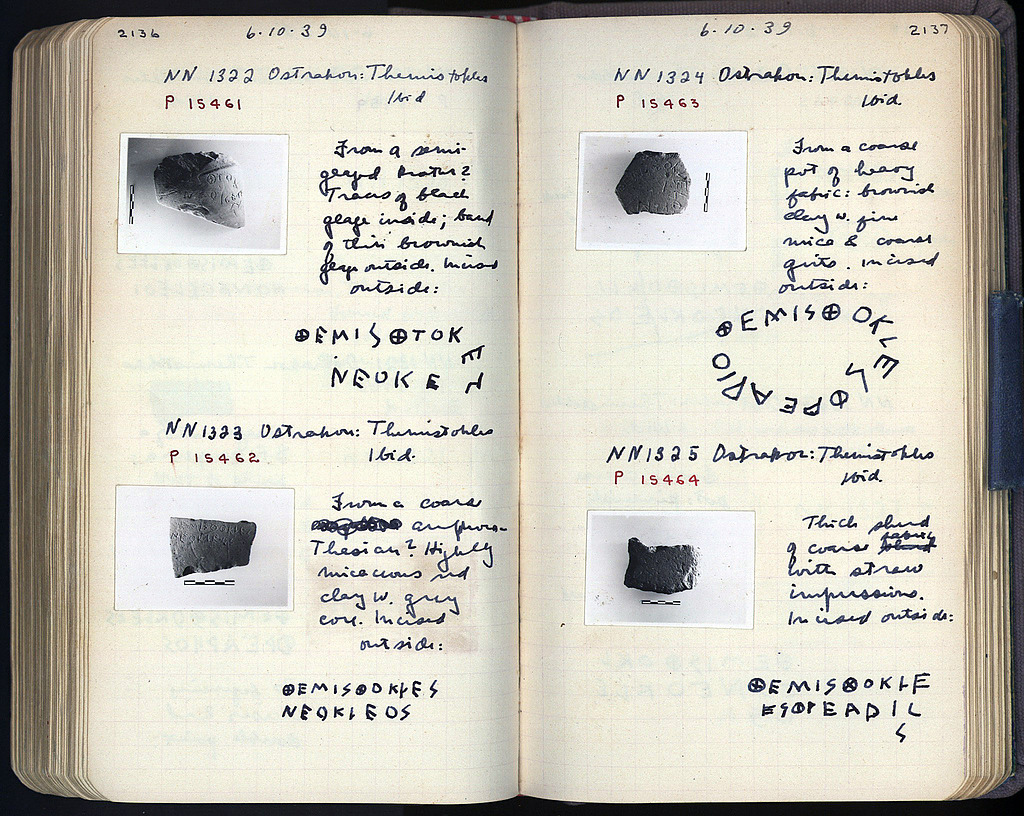 2136
6·10·39
NN 1322 Ostrakon: Themistokles
P 15461
Ibid
From a semi-
glazed krater?
Traces of black
glaze inside; band
of thin brownish
glaze outside. Incised
outside:
⊕EMIS⊕TOK
LE
NEOKLE
NN 1323 Ostrakon: Themistokles
P 15462
Ibid.
From a coarse
amphora-
Thasian? Highly
micaceous red
clay w. grey
core. Incised
outside:
⊕EMIS⊕OKLES
NEOKLEOS
2137
6·10·39
NN 1324 Ostrakon: Themistokles
P 15463
Ibid.
From a coarse
pot of heavy
fabric: brownish
clay w. fine
mica & coarse
grits. Incised
outside:
⊕EMIS⊕OKLES ΦPEAPIO
NN 1325 Ostrakon: Themistokles
P 15464
Ibid.
Thick sherd
of coarse fabric
with straw
impressions.
Incised outside:
⊕EMIS⊗OKLE
ESΦPEADIL
S